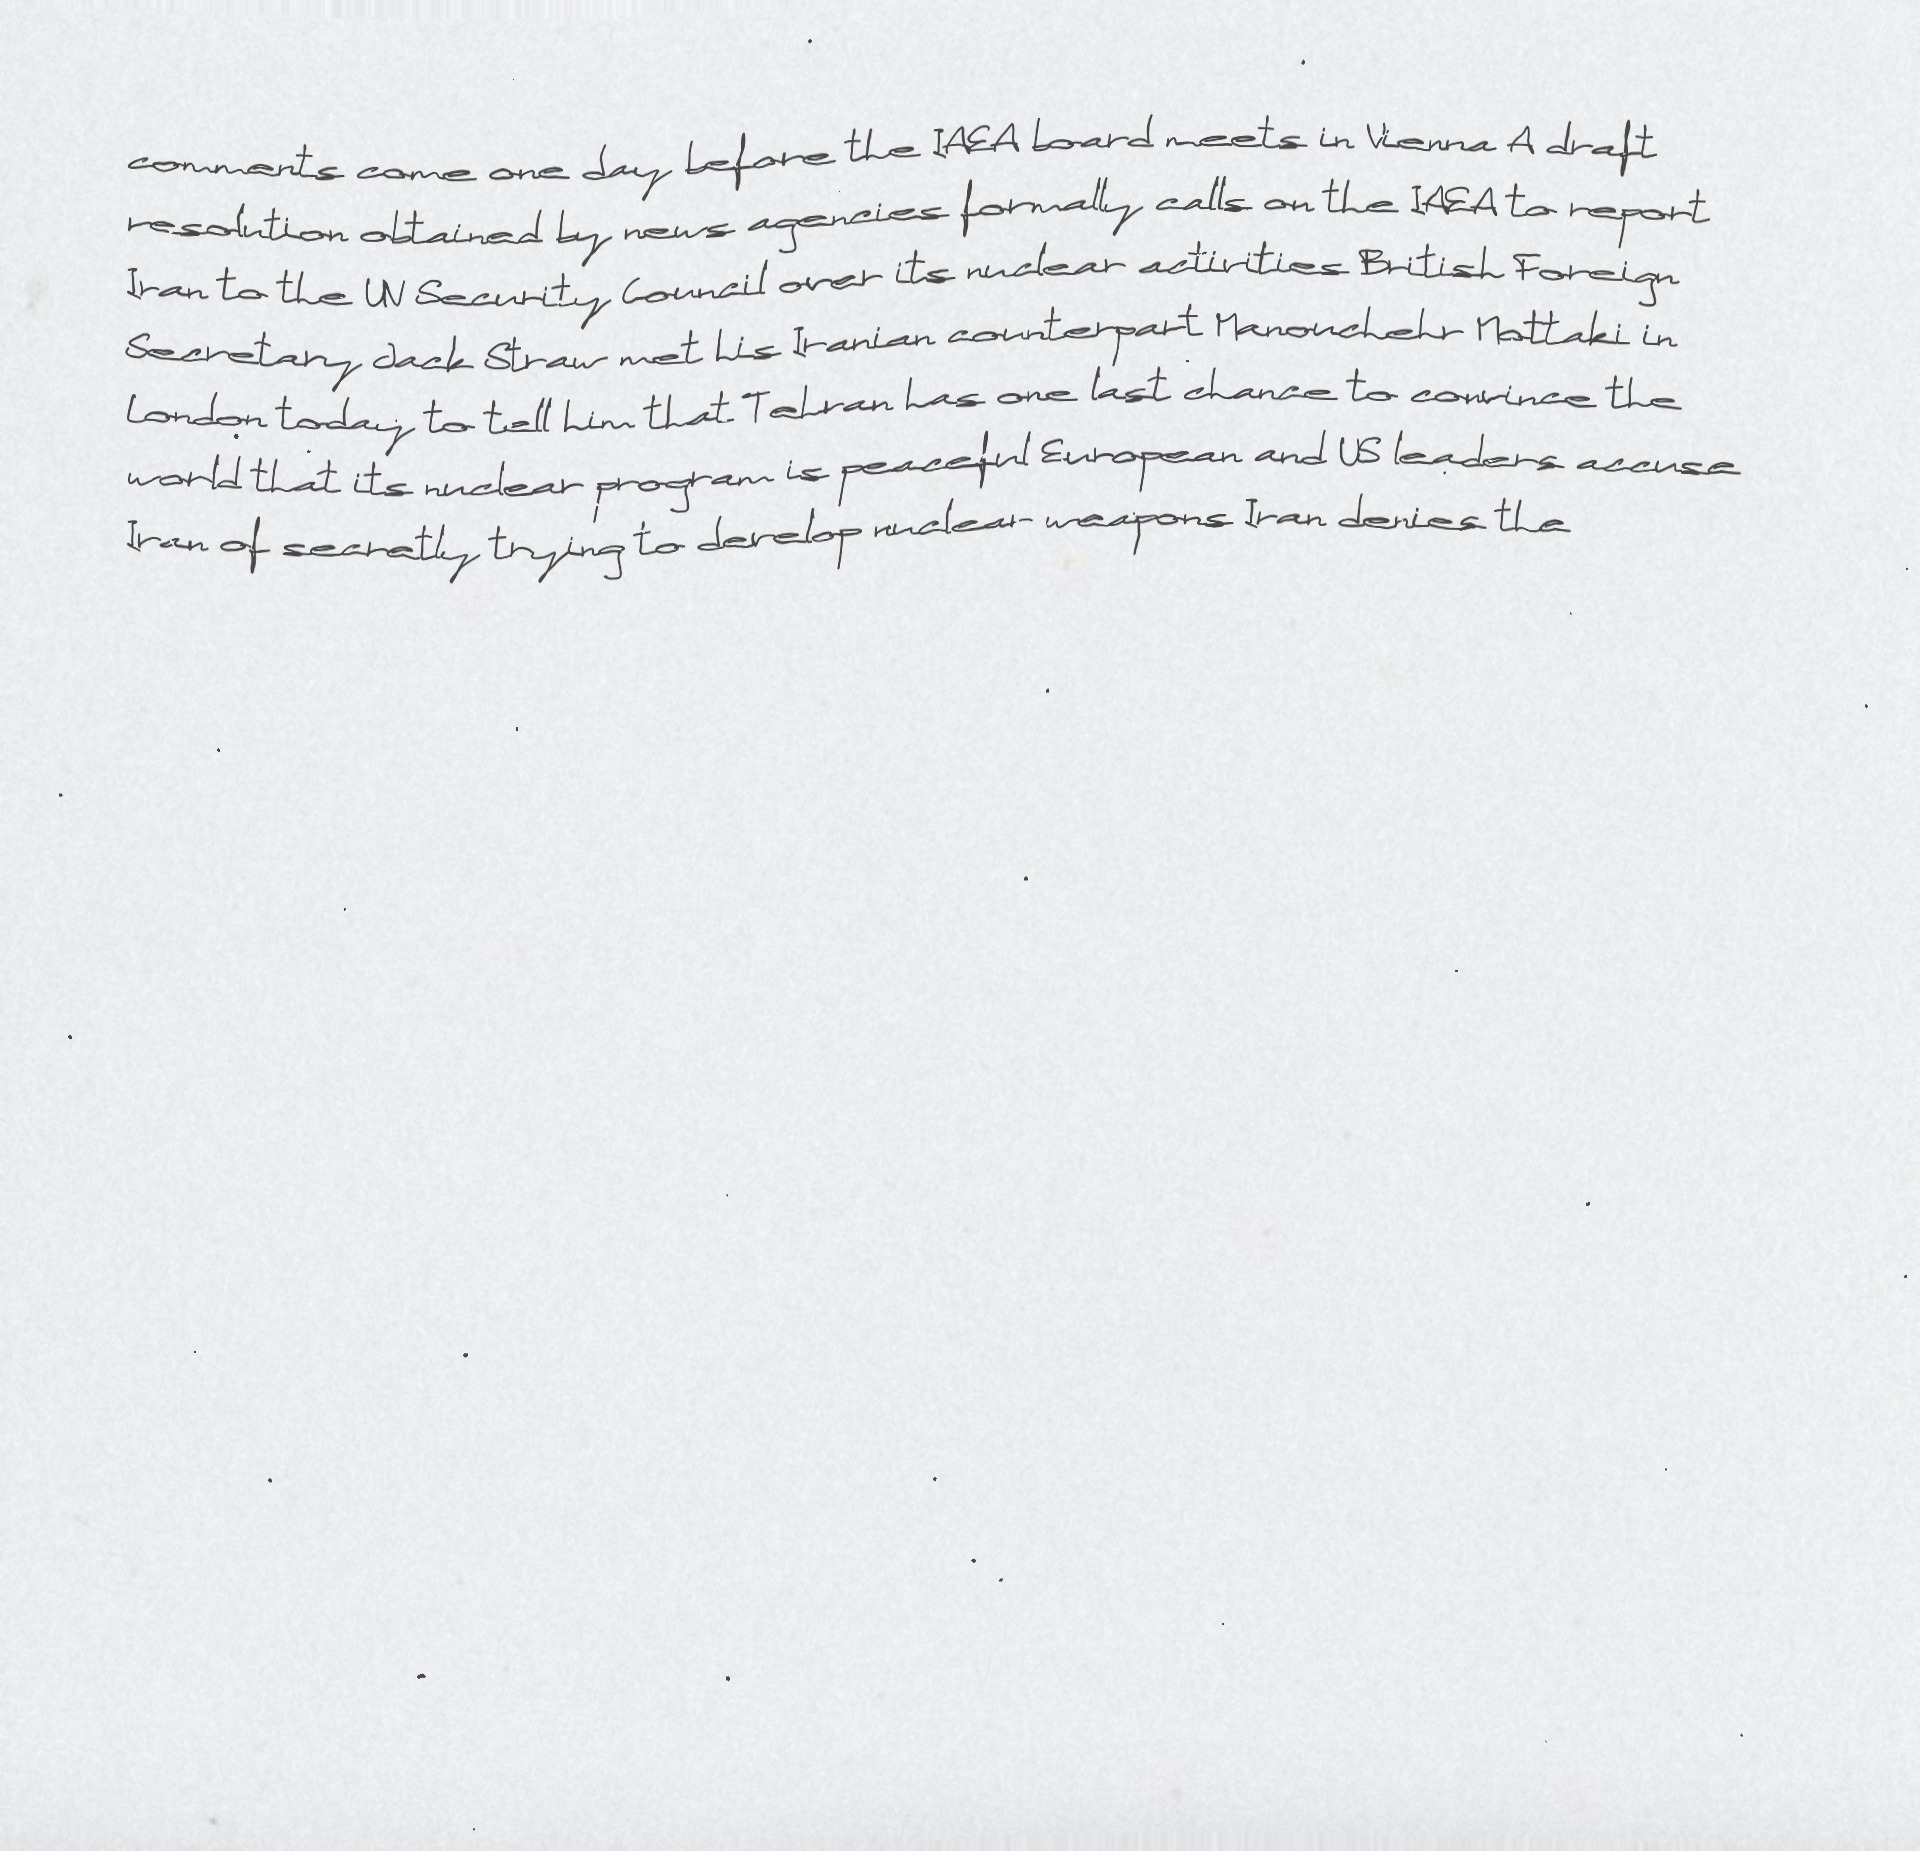 comments come one day before the IAEA board meets in Vienna A draft
resolution obtained by news agencies formally calls on the IAEA to report
Iran to the UN Security Council over its nuclear activities British Foreign
Secretary Jack Straw met his Iranian counterpart Manouchehr Mottaki in
London today to tell him that Tehran has one last chance to convince the
world that its nuclear program is peaceful European and US leaders accuse
Iran of secretly trying to develop nuclear weapons Iran denies the